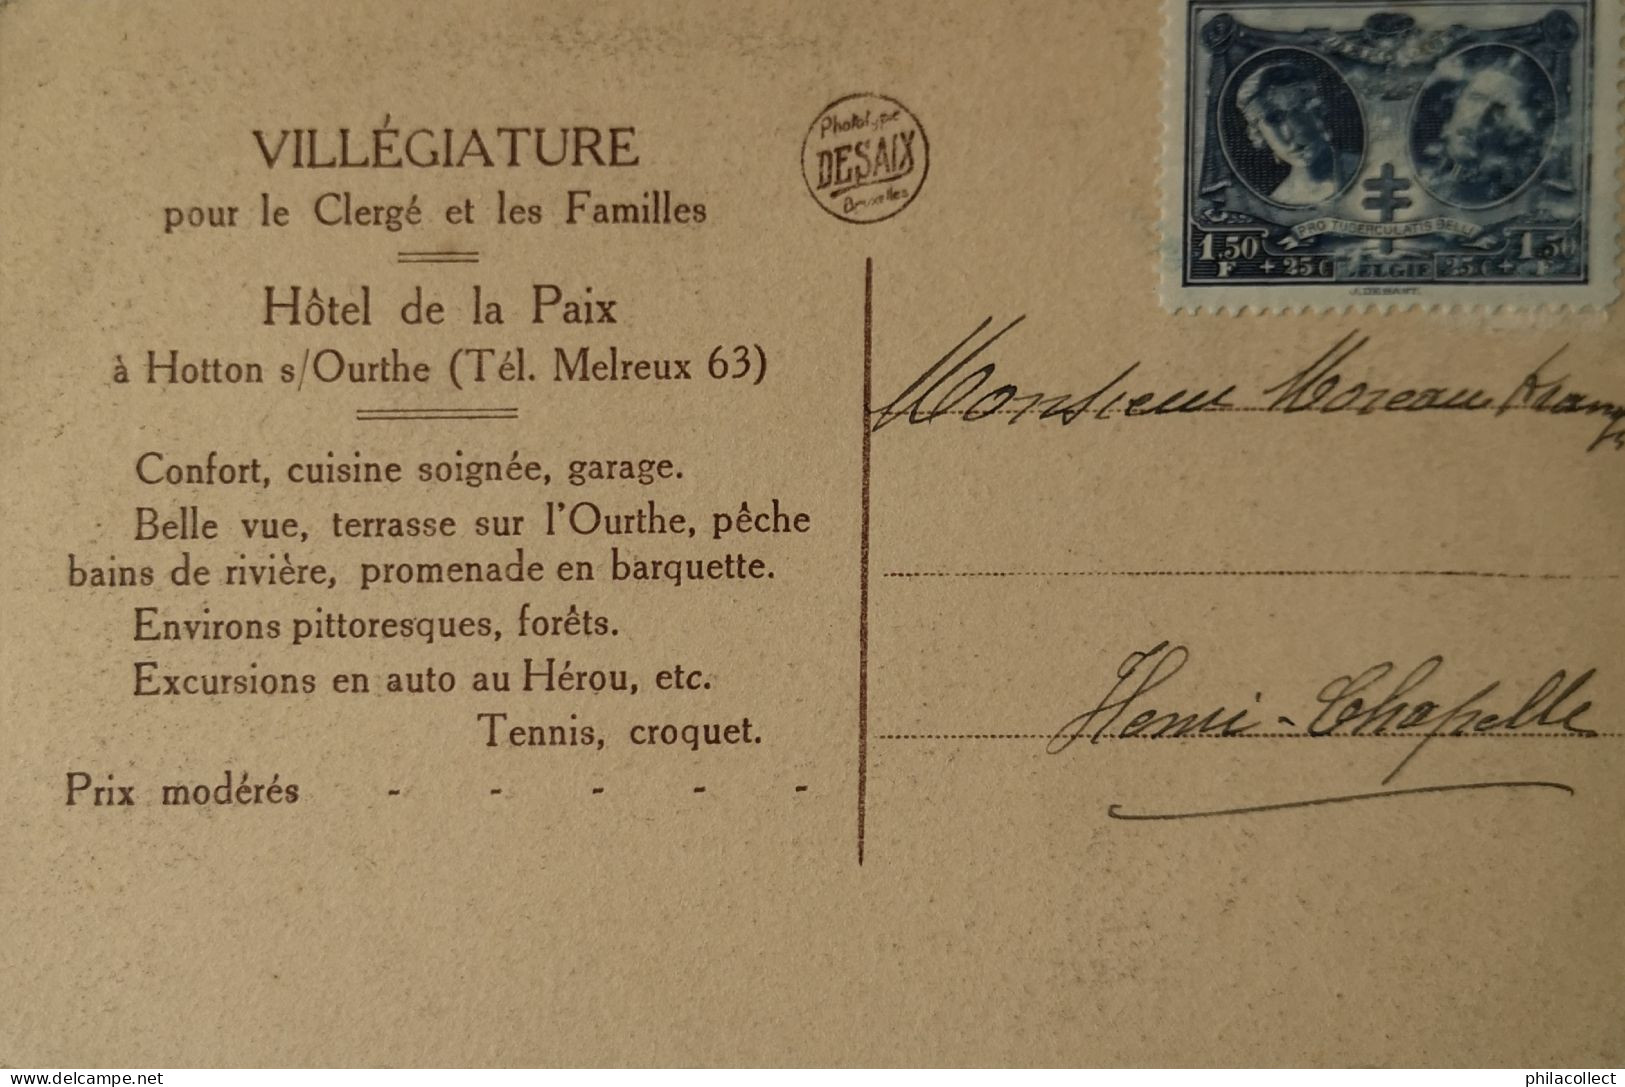 VILLÉGIATURE
pour le Clergé et les Familles
Hôtel de la Paix
à Hotton s/Ourthe (Tél. Melreux 63)
Confort, cuisine soignée, garage.
Belle vue, terrasse sur l'Ourthe, pêche
bains de rivière, promenade en barquette.
Environs pittoresques, forêts.
Excursions en auto au Hérou, etc.
Tennis, croquet.
Prix modérés - - - - -
Phototypie
DESAIX
Bruxelles
PRO TUBERCULATIS BELLI
1,50 F + 25 C BELGIE 25 C + 1,50 F
Monsieur Moreau
Henri-Chapelle
delcampe.net
philacollect